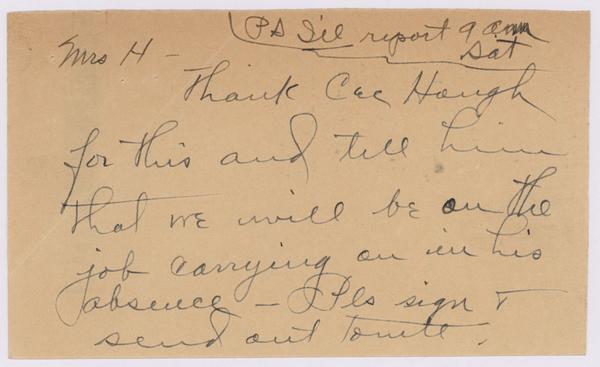 PS I'll report 9 am
Sat
Mrs H -
Thank Cec Hough
for this and tell him
that we will be on the
job carrying on in his
absence - Pls sign &
send out tonite.